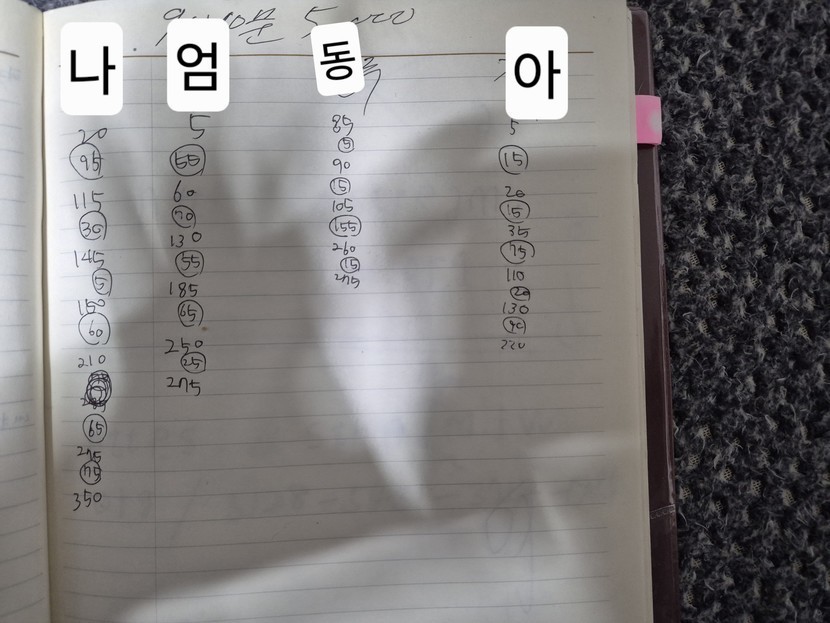 5,000
나 엄 동 아
20
95
115
30
145
5
150
60
210
65
275
75
350
5
55
60
70
130
55
185
65
250
25
275
85
5
90
15
105
155
260
15
275
5
15
20
15
35
75
110
20
130
90
220